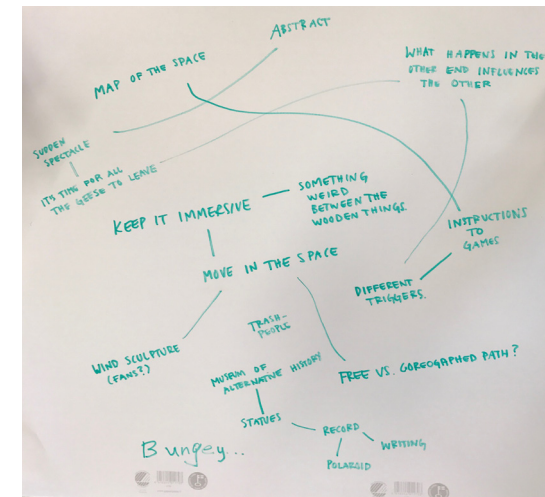 ABSTRACT
MAP OF THE SPACE
WHAT HAPPENS IN THE
OTHER END INFLUENCES
THE OTHER
SUDDEN
SPECTACLE
ITS TIME FOR ALL
THE GEESE TO LEAVE
KEEP IT IMMERSIVE
SOMETHING
WEIRD
BETWEEN THE
WOODEN THINGS.
INSTRUCTIONS
TO
GAMES
MOVE IN THE SPACE
DIFFERENT
TRIGGERS.
TRASH-
PEOPLE
WIND SCULPTURE
(FANS?)
MUSEUM OF
ALTERNATIVE HISTORY
FREE VS. COREOGAPHED PATH?
STATUES
RECORD
WRITING
POLAROID
Bungey...